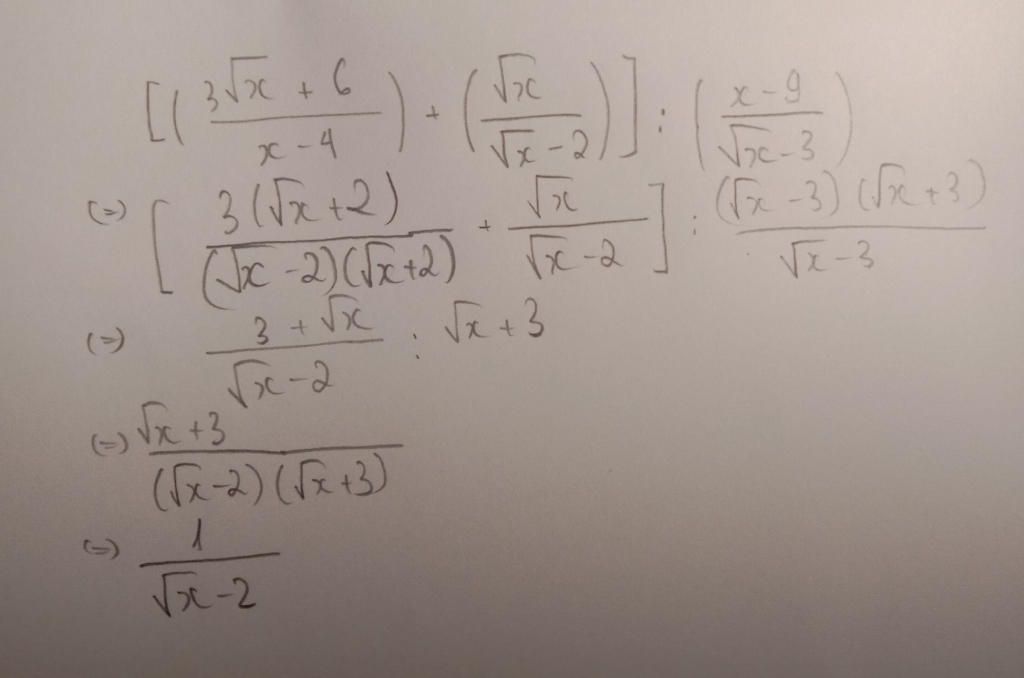 [(3√x + 6 / x - 4) + (√x / √x - 2)] : (x - 9 / √x - 3)
(=) [3(√x + 2) / (√x - 2)(√x + 2) + √x / √x - 2] : (√x - 3)(√x + 3) / √x - 3
(=) 3 + √x / √x - 2 : √x + 3
(=) √x + 3 / (√x - 2)(√x + 3)
(=) 1 / √x - 2